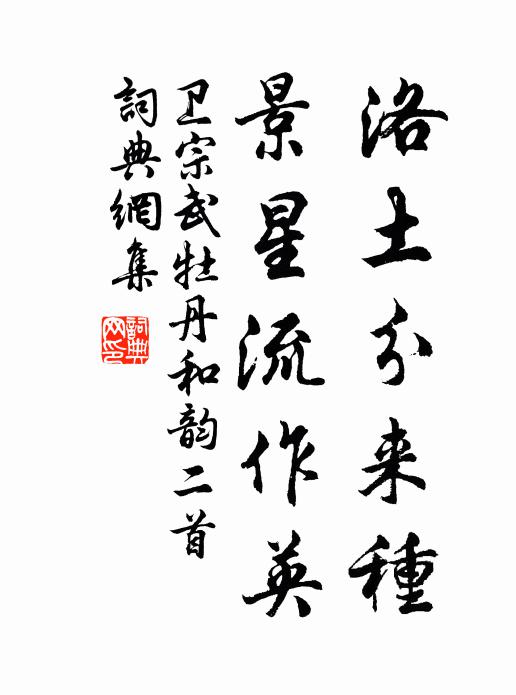 洛土分来種
景星流作英
卫宗武牡丹和韵二首
詞典網集
詞典网印